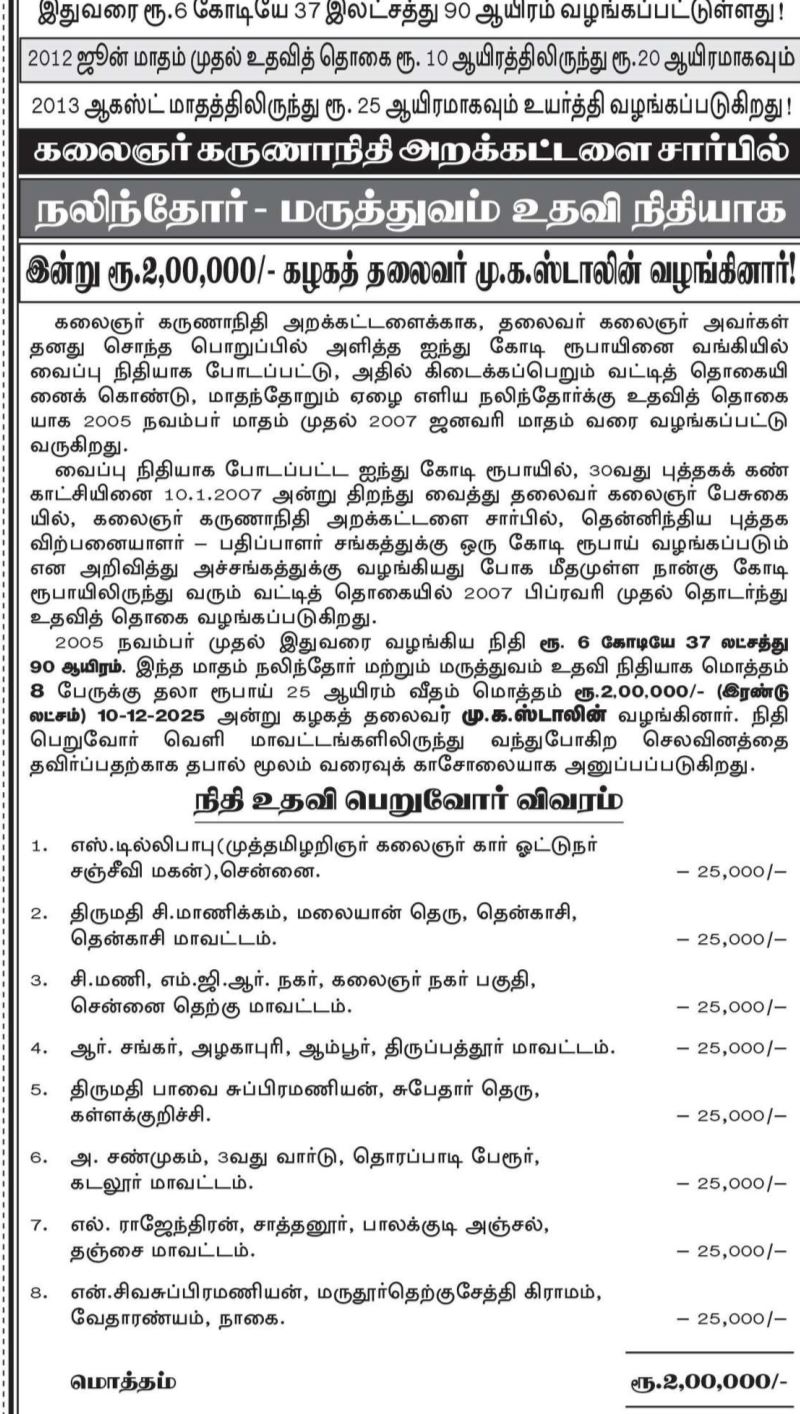 இதுவரை ரூ.6 கோடியே 37 இலட்சத்து 90 ஆயிரம் வழங்கப்பட்டுள்ளது!
2012 ஜூன் மாதம் முதல் உதவித் தொகை ரூ. 10 ஆயிரத்திலிருந்து ரூ.20 ஆயிரமாகவும்
2013 ஆகஸ்ட் மாதத்திலிருந்து ரூ. 25 ஆயிரமாகவும் உயர்த்தி வழங்கப்படுகிறது!
கலைஞர் கருணாநிதி அறக்கட்டளை சார்பில்
நலிந்தோர் - மருத்துவம் உதவி நிதியாக
இன்று ரூ.2,00,000/- கழகத் தலைவர் மு.க.ஸ்டாலின் வழங்கினார்!
கலைஞர் கருணாநிதி அறக்கட்டளைக்காக, தலைவர் கலைஞர் அவர்கள்
தனது சொந்த பொறுப்பில் அளித்த ஐந்து கோடி ரூபாயினை வங்கியில்
வைப்பு நிதியாக போடப்பட்டு, அதில் கிடைக்கப்பெறும் வட்டித் தொகையி
னைக் கொண்டு, மாதந்தோறும் ஏழை எளிய நலிந்தோர்க்கு உதவித் தொகை
யாக 2005 நவம்பர் மாதம் முதல் 2007 ஜனவரி மாதம் வரை வழங்கப்பட்டு
வருகிறது.
வைப்பு நிதியாக போடப்பட்ட ஐந்து கோடி ரூபாயில், 30வது புத்தகக் கண்
காட்சியினை 10.1.2007 அன்று திறந்து வைத்து தலைவர் கலைஞர் பேசுகை
யில், கலைஞர் கருணாநிதி அறக்கட்டளை சார்பில், தென்னிந்திய புத்தக
விற்பனையாளர் – பதிப்பாளர் சங்கத்துக்கு ஒரு கோடி ரூபாய் வழங்கப்படும்
என அறிவித்து அச்சங்கத்துக்கு வழங்கியது போக மீதமுள்ள நான்கு கோடி
ரூபாயிலிருந்து வரும் வட்டித் தொகையில் 2007 பிப்ரவரி முதல் தொடர்ந்து
உதவித் தொகை வழங்கப்படுகிறது.
2005 நவம்பர் முதல் இதுவரை வழங்கிய நிதி ரூ. 6 கோடியே 37 லட்சத்து
90 ஆயிரம். இந்த மாதம் நலிந்தோர் மற்றும் மருத்துவம் உதவி நிதியாக மொத்தம்
8 பேருக்கு தலா ரூபாய் 25 ஆயிரம் வீதம் மொத்தம் ரூ.2,00,000/- (இரண்டு
லட்சம்) 10-12-2025 அன்று கழகத் தலைவர் மு.க.ஸ்டாலின் வழங்கினார். நிதி
பெறுவோர் வெளி மாவட்டங்களிலிருந்து வந்துபோகிற செலவினத்தை
தவிர்ப்பதற்காக தபால் மூலம் வரைவுக் காசோலையாக அனுப்பப்படுகிறது.
நிதி உதவி பெறுவோர் விவரம்
1. எஸ்.டில்லிபாபு(முத்தமிழறிஞர் கலைஞர் கார் ஓட்டுநர்
சஞ்சீவி மகன்),சென்னை. – 25,000/–
2. திருமதி சி.மாணிக்கம், மலையான் தெரு, தென்காசி,
தென்காசி மாவட்டம். – 25,000/–
3. சி.மணி, எம்.ஜி.ஆர். நகர், கலைஞர் நகர் பகுதி,
சென்னை தெற்கு மாவட்டம். – 25,000/–
4. ஆர். சங்கர், அழகாபுரி, ஆம்பூர், திருப்பத்தூர் மாவட்டம். – 25,000/–
5. திருமதி பாவை சுப்பிரமணியன், சுபேதார் தெரு,
கள்ளக்குறிச்சி. – 25,000/–
6. அ. சண்முகம், 3வது வார்டு, தொரப்பாடி பேரூர்,
கடலூர் மாவட்டம். – 25,000/–
7. எல். ராஜேந்திரன், சாத்தனூர், பாலக்குடி அஞ்சல்,
தஞ்சை மாவட்டம். – 25,000/–
8. என்.சிவசுப்பிரமணியன், மருதூர்தெற்குசேத்தி கிராமம்,
வேதாரண்யம், நாகை. – 25,000/–
மொத்தம் ரூ.2,00,000/-